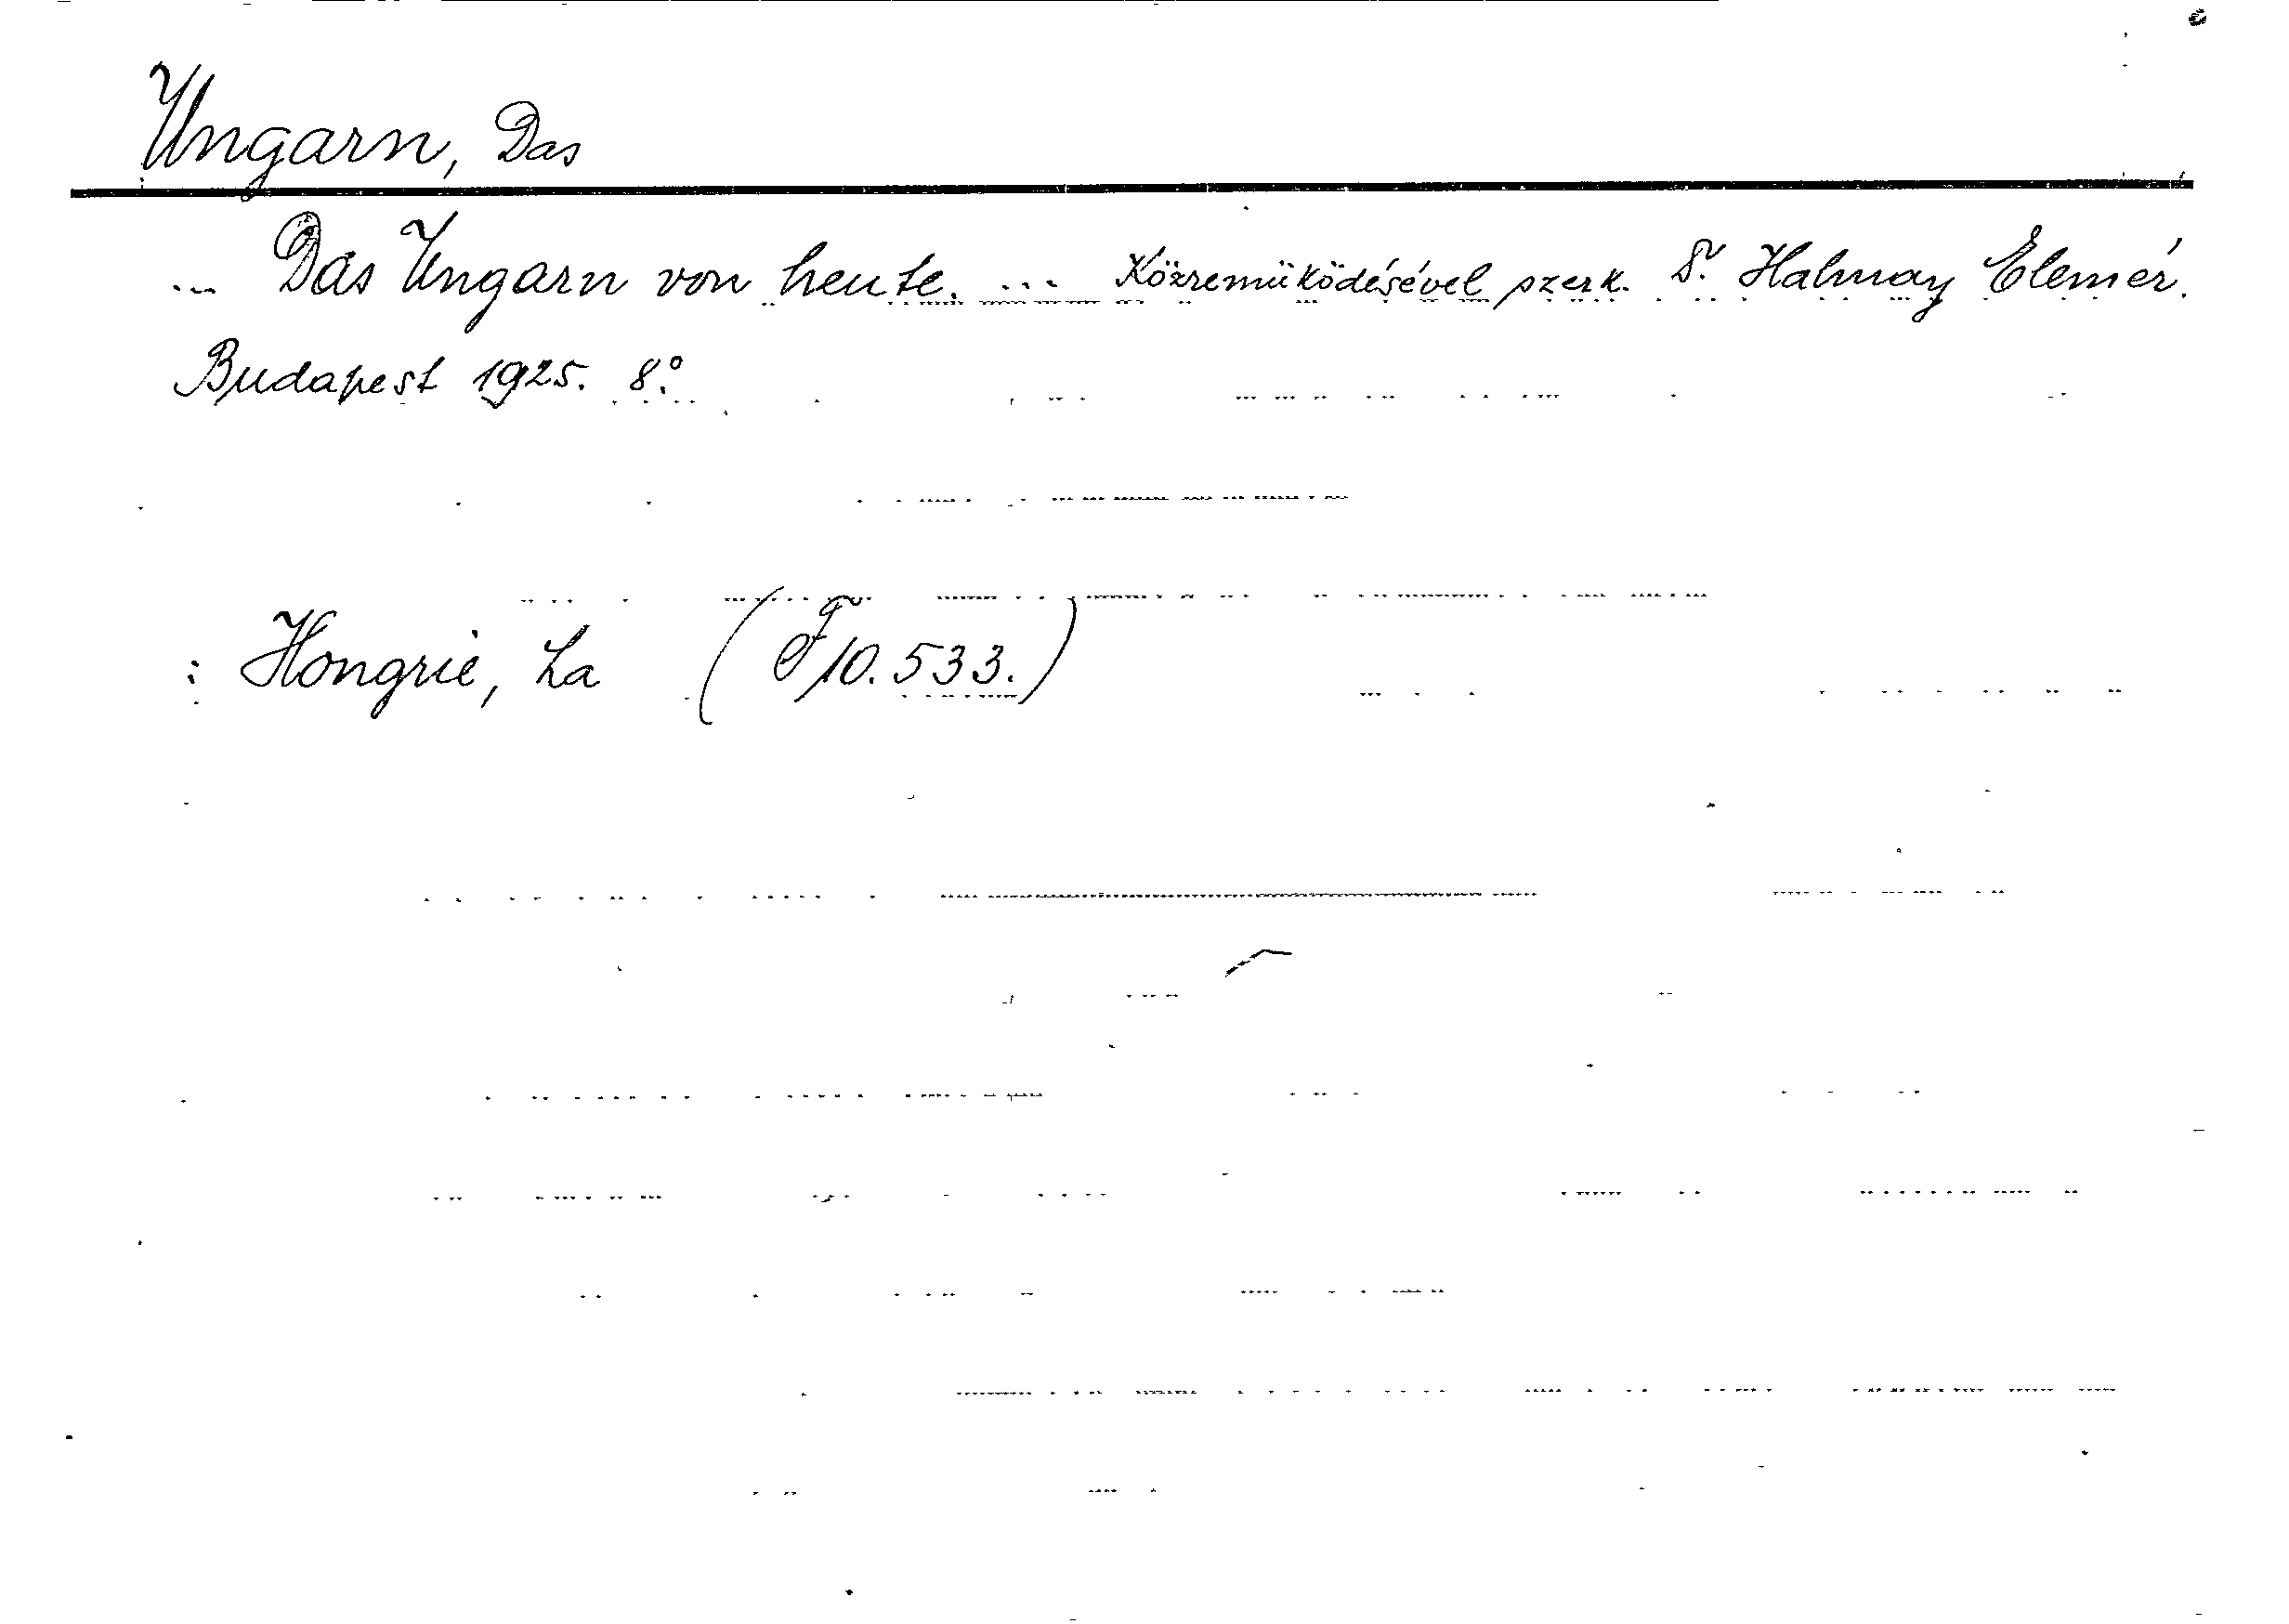 Ungarn, Das
... Das Ungarn von heute. ... Közreműködésével szerk. Dr. Halmay Elemér.
Budapest 1925. 8°.
: Hongrie, La (F 10.533.)